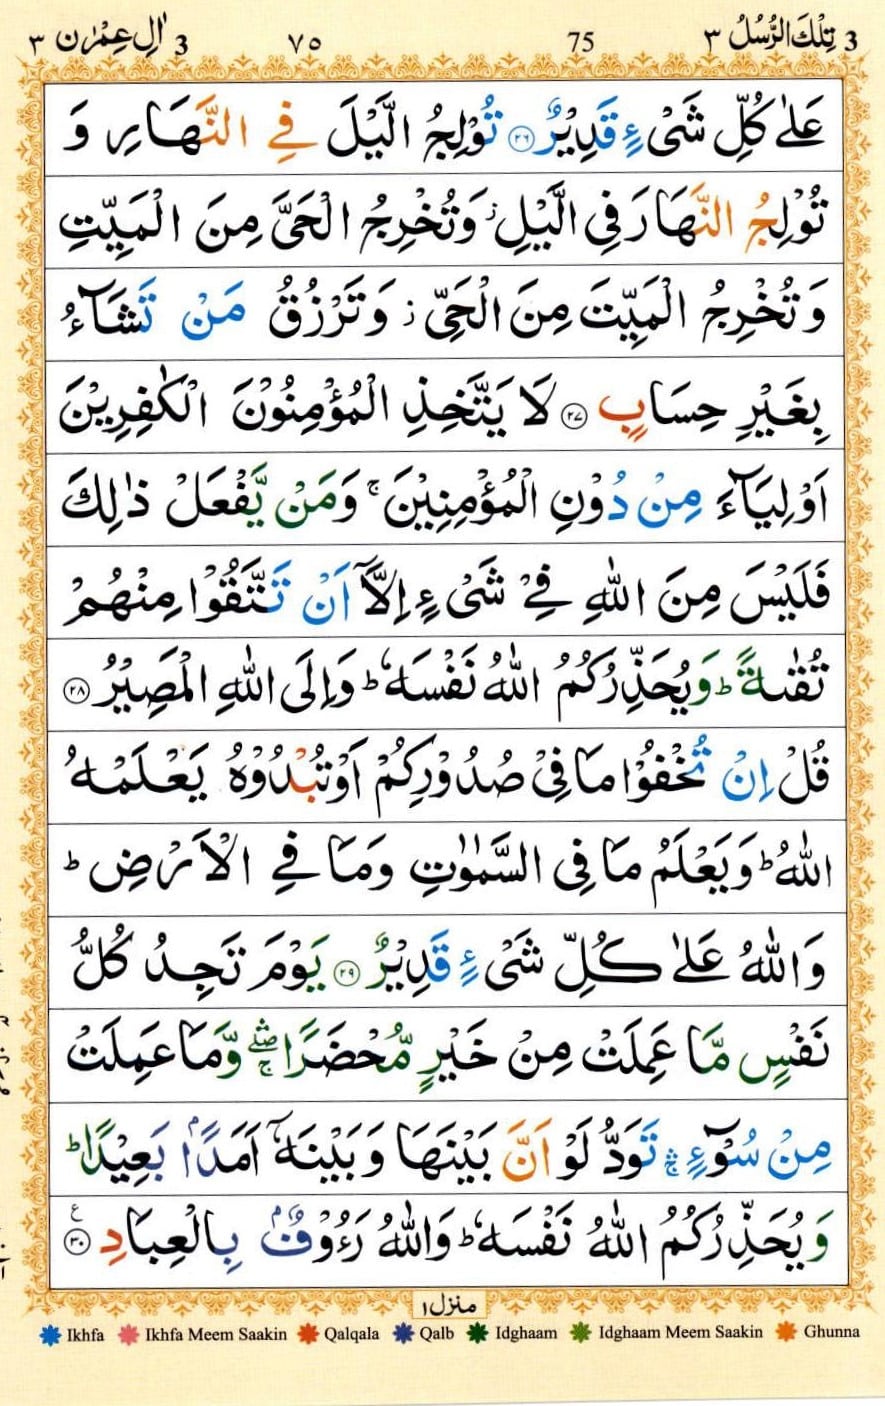 3 تِلْكَ الرُّسُلُ ٣ 75 ٧٥ 3 اٰلِ عِمْرٰن ٣
عَلٰى كُلِّ شَىْءٍ قَدِيْرٌ ۝٢٦ تُوْلِجُ الَّيْلَ فِى النَّهَارِ وَ
تُوْلِجُ النَّهَارَ فِى الَّيْلِ ز وَتُخْرِجُ الْحَىَّ مِنَ الْمَيِّتِ
وَتُخْرِجُ الْمَيِّتَ مِنَ الْحَىِّ ز وَتَرْزُقُ مَنْ تَشَآءُ
بِغَيْرِ حِسَابٍ ۝٢٧ لَا يَتَّخِذِ الْمُؤْمِنُوْنَ الْكٰفِرِيْنَ
اَوْلِيَآءَ مِنْ دُوْنِ الْمُؤْمِنِيْنَ ۚ وَمَنْ يَّفْعَلْ ذٰلِكَ
فَلَيْسَ مِنَ اللّٰهِ فِىْ شَىْءٍ اِلَّاۤ اَنْ تَتَّقُوْا مِنْهُمْ
تُقٰىةً ؕ وَيُحَذِّرُكُمُ اللّٰهُ نَفْسَهٗ ؕ وَاِلَى اللّٰهِ الْمَصِيْرُ ۝٢٨
قُلْ اِنْ تُخْفُوْا مَا فِىْ صُدُوْرِكُمْ اَوْ تُبْدُوْهُ يَعْلَمْهُ
اللّٰهُ ؕ وَيَعْلَمُ مَا فِى السَّمٰوٰتِ وَمَا فِى الْاَرْضِ ؕ
وَاللّٰهُ عَلٰى كُلِّ شَىْءٍ قَدِيْرٌ ۝٢٩ يَوْمَ تَجِدُ كُلُّ
نَفْسٍ مَّا عَمِلَتْ مِنْ خَيْرٍ مُّحْضَرًا ۛۖۚ وَّمَا عَمِلَتْ
مِنْ سُوْٓءٍ ۛۚ تَوَدُّ لَوْ اَنَّ بَيْنَهَا وَبَيْنَهٗۤ اَمَدًاۢ بَعِيْدًا ؕ
وَيُحَذِّرُكُمُ اللّٰهُ نَفْسَهٗ ؕ وَاللّٰهُ رَءُوْفٌۢ بِالْعِبَادِ ۝٣٠ ع
منزل ١
Ikhfa Ikhfa Meem Saakin Qalqala Qalb Idghaam Idghaam Meem Saakin Ghunna